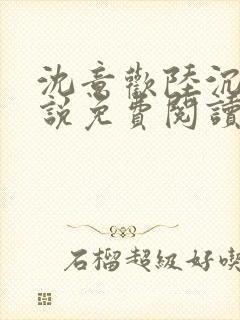 沈意歡陸沉
說免費閱讀
石榴超級好喫